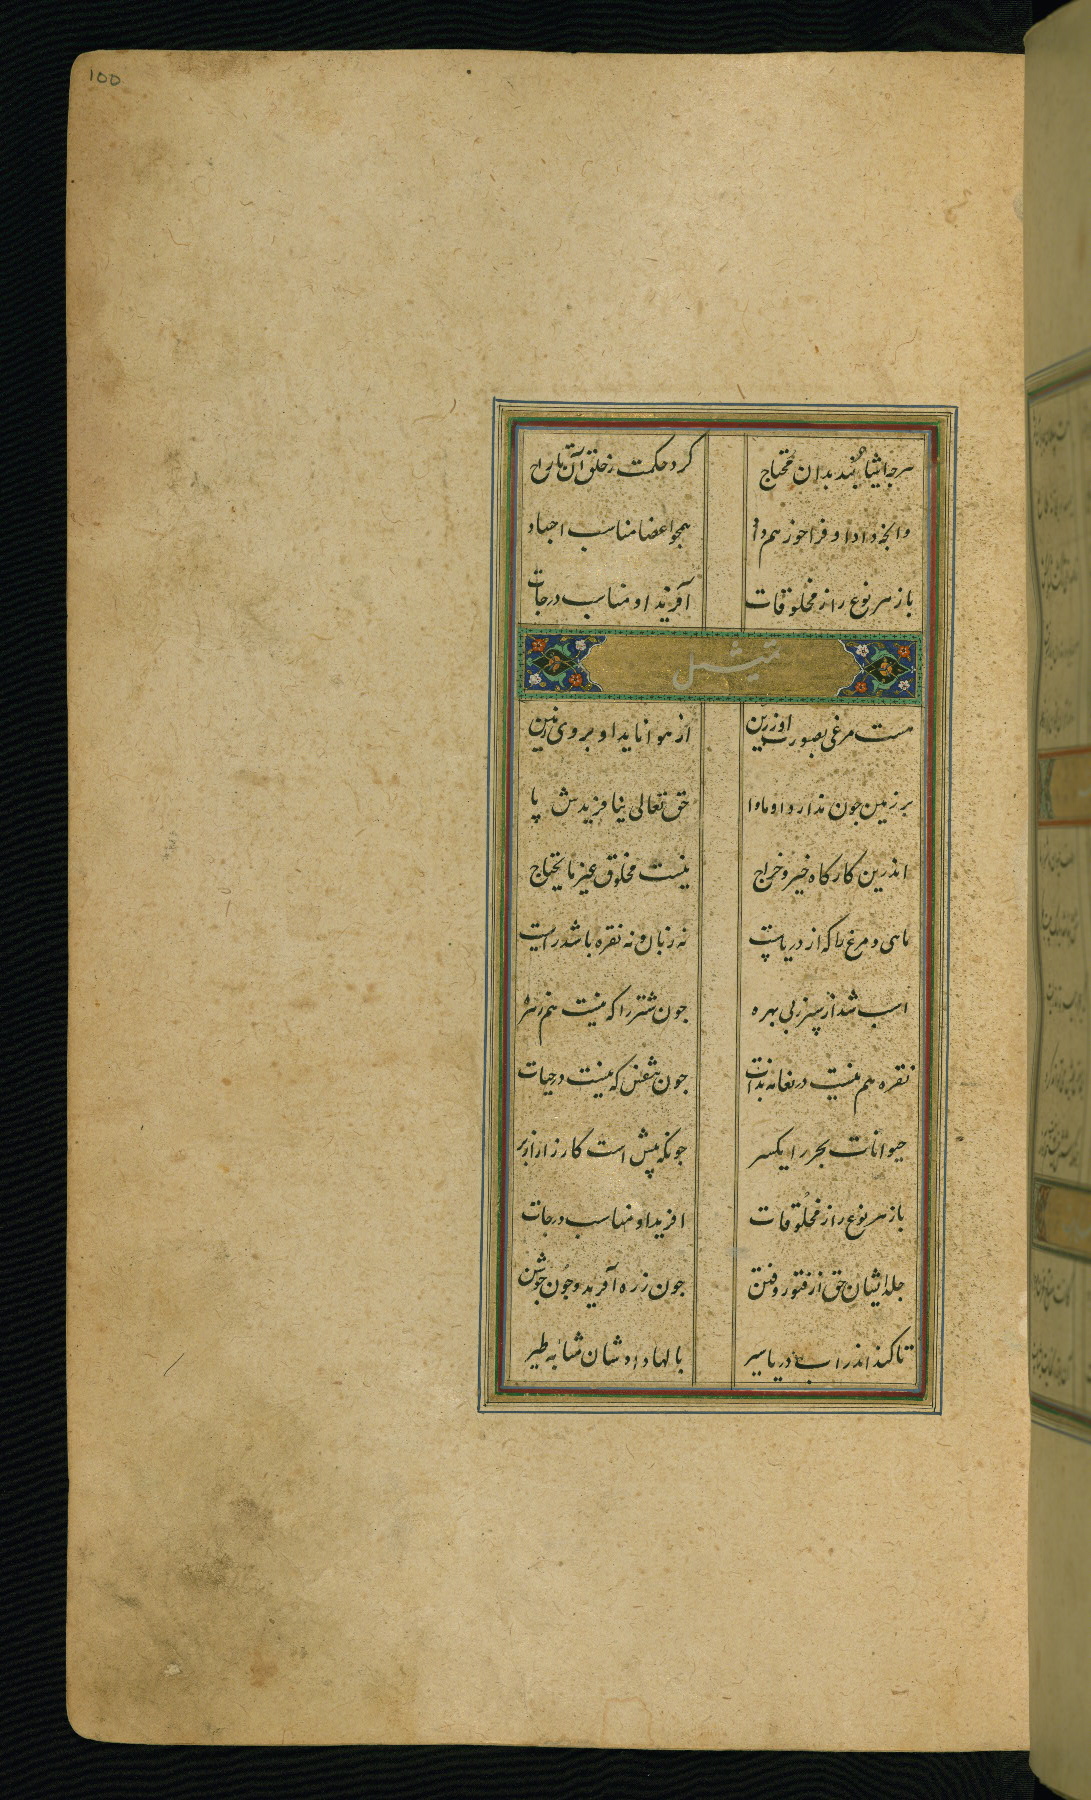 100
هرچه ایشان بُند بدان محتاج
کرد حکمت ز خلق آن
همچو اعضا مناسب اجساد
باز هر نوع را ز مخلوقات
آفرید او مناسب درجات
تمثیل
هست مرغی بصورت او زرین
از هوا ناید او بروی زمین
بر زمین چون ندارد او ماوا
حق تعالی نیافریدش پا
اندرین کارگاه خیر و خراج
نیست مخلوق غیر ما یحتاج
ماهی و مرغ را که از دریاست
نه زبان و نه نقره باشد راست
اسب شد از سپرز بی بهره
چون شتر را که نیست هم زهره
نقره هم نیست در نعامه بذات
چون که نیست در حیات
حیوانات بحر را یکسر
چونکه پیش است کارزار
باز هر نوع را ز مخلوقات
افرید او مناسب درجات
جلد ایشان حق از فتور و فتن
چون زره آفرید و چون جوشن
تا کنند اندر اب دریا سیر
بالها دادشان مشابه طیر